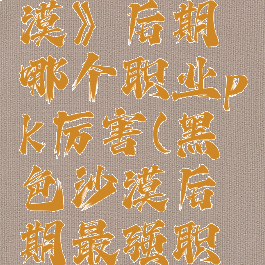 漠》后期
哪个职业p
k厉害(黑
色沙漠后
期最强职